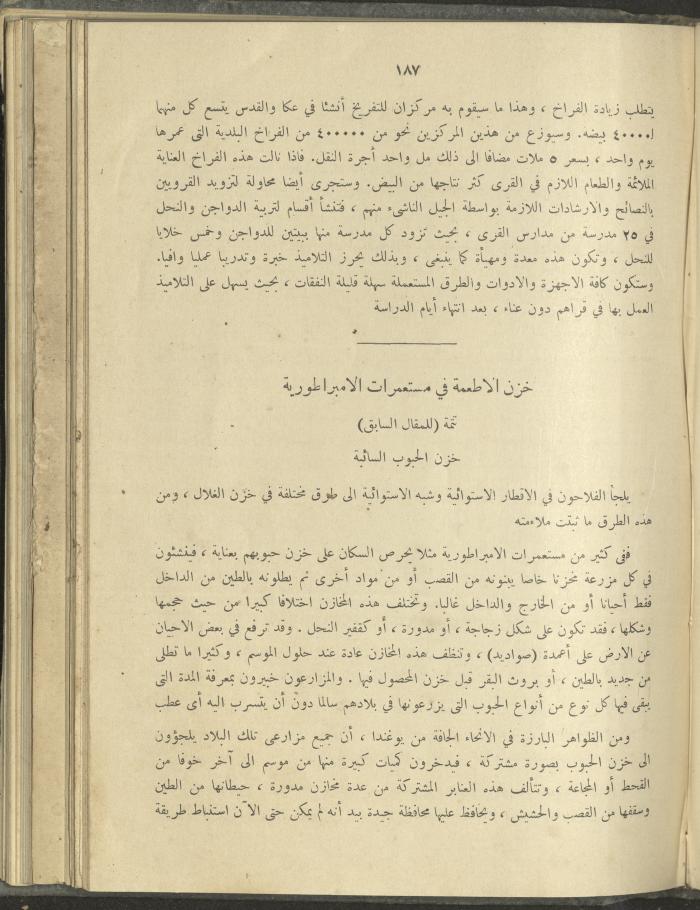 ١٨٧
يتطلب زيادة الفراخ ، وهذا ما سيقوم به مركزان للتفريخ أنشئا في عكا والقدس يتسع كل منهما
٤٠٠٠٠ بيضه. وسيوزع من هذين المركزين نحو من ٤٠٠٠٠٠ من الفراخ البلدية التى عمرها
يوم واحد ، بسعر ٥ ملات مضافا الى ذلك مل واحد أجرة النقل. فاذا نالت هذه الفراخ العناية
الملائمة والطعام اللازم في القرى كثر نتاجها من البيض. وستجرى أيضا محاولة لتزويد القرويين
بالنصائح والارشادات اللازمة بواسطة الجيل الناشىء منهم ، فتنشأ أقسام لتربية الدواجن والنحل
في ٢٥ مدرسة من مدارس القرى ، بحيث تزود كل مدرسة منها ببيتين للدواجن وخمس خلايا
للنحل ، وتكون هذه معدة ومهيأة كما ينبغى ، وبذلك يحرز التلاميذ خبرة وتدريبا عمليا وافيا.
وستكون كافة الاجهزة والادوات والطرق المستعملة سهلة قليلة النفقات ، بحيث يسهل على التلاميذ
العمل بها في قراهم دون عناء ، بعد انتهاء أيام الدراسة
خزن الاطعمة في مستعمرات الامبراطورية
تتمة (للمقال السابق)
خزن الحبوب السائبة
يلجأ الفلاحون في الاقطار الاستوائية وشبه الاستوائية الى طرق مختلفة في خزن الغلال ، ومن
هذه الطرق ما ثبتت ملاءمته
ففى كثير من مستعمرات الامبراطورية مثلا يحرص السكان على خزن حبوبهم بعناية ، فينشئون
في كل مزرعة مخزنا خاصا يبنونه من القصب أو من مواد أخرى ثم يطلونه بالطين من الداخل
فقط أحيانا أو من الخارج والداخل غالبا. وتختلف هذه المخازن اختلافا كبيرا من حيث حجمها
وشكلها ، فقد تكون على شكل زجاجة ، أو مدورة ، أو كقفير النحل . وقد ترفع في بعض الاحيان
عن الارض على أعمدة (صواديد) ، وتنظف هذه المخازن عادة عند حلول الموسم ، وكثيرا ما تطلى
من جديد بالطين ، أو بروث البقر قبل خزن المحصول فيها . والمزارعون خبيرون بمعرفة المدة التى
يبقى فيها كل نوع من أنواع الحبوب التى يزرعونها في بلادهم سالما دون أن يتسرب اليه أى عطب
ومن الظواهر البارزة في الانحاء الجافة من يوغندا ، أن جميع مزارعى تلك البلاد يلجؤون
الى خزن الحبوب بصورة مشتركة ، فيدخرون كميات كبيرة منها من موسم الى آخر خوفا من
القحط أو المجاعة ، وتتألف هذه العنابر المشتركة من عدة مخازن مدورة ، حيطانها من الطين
وسقفها من القصب والحشيش ، ويحافظ عليها محافظة جيدة بيد أنه لم يمكن حتى الآن استنباط طريقة